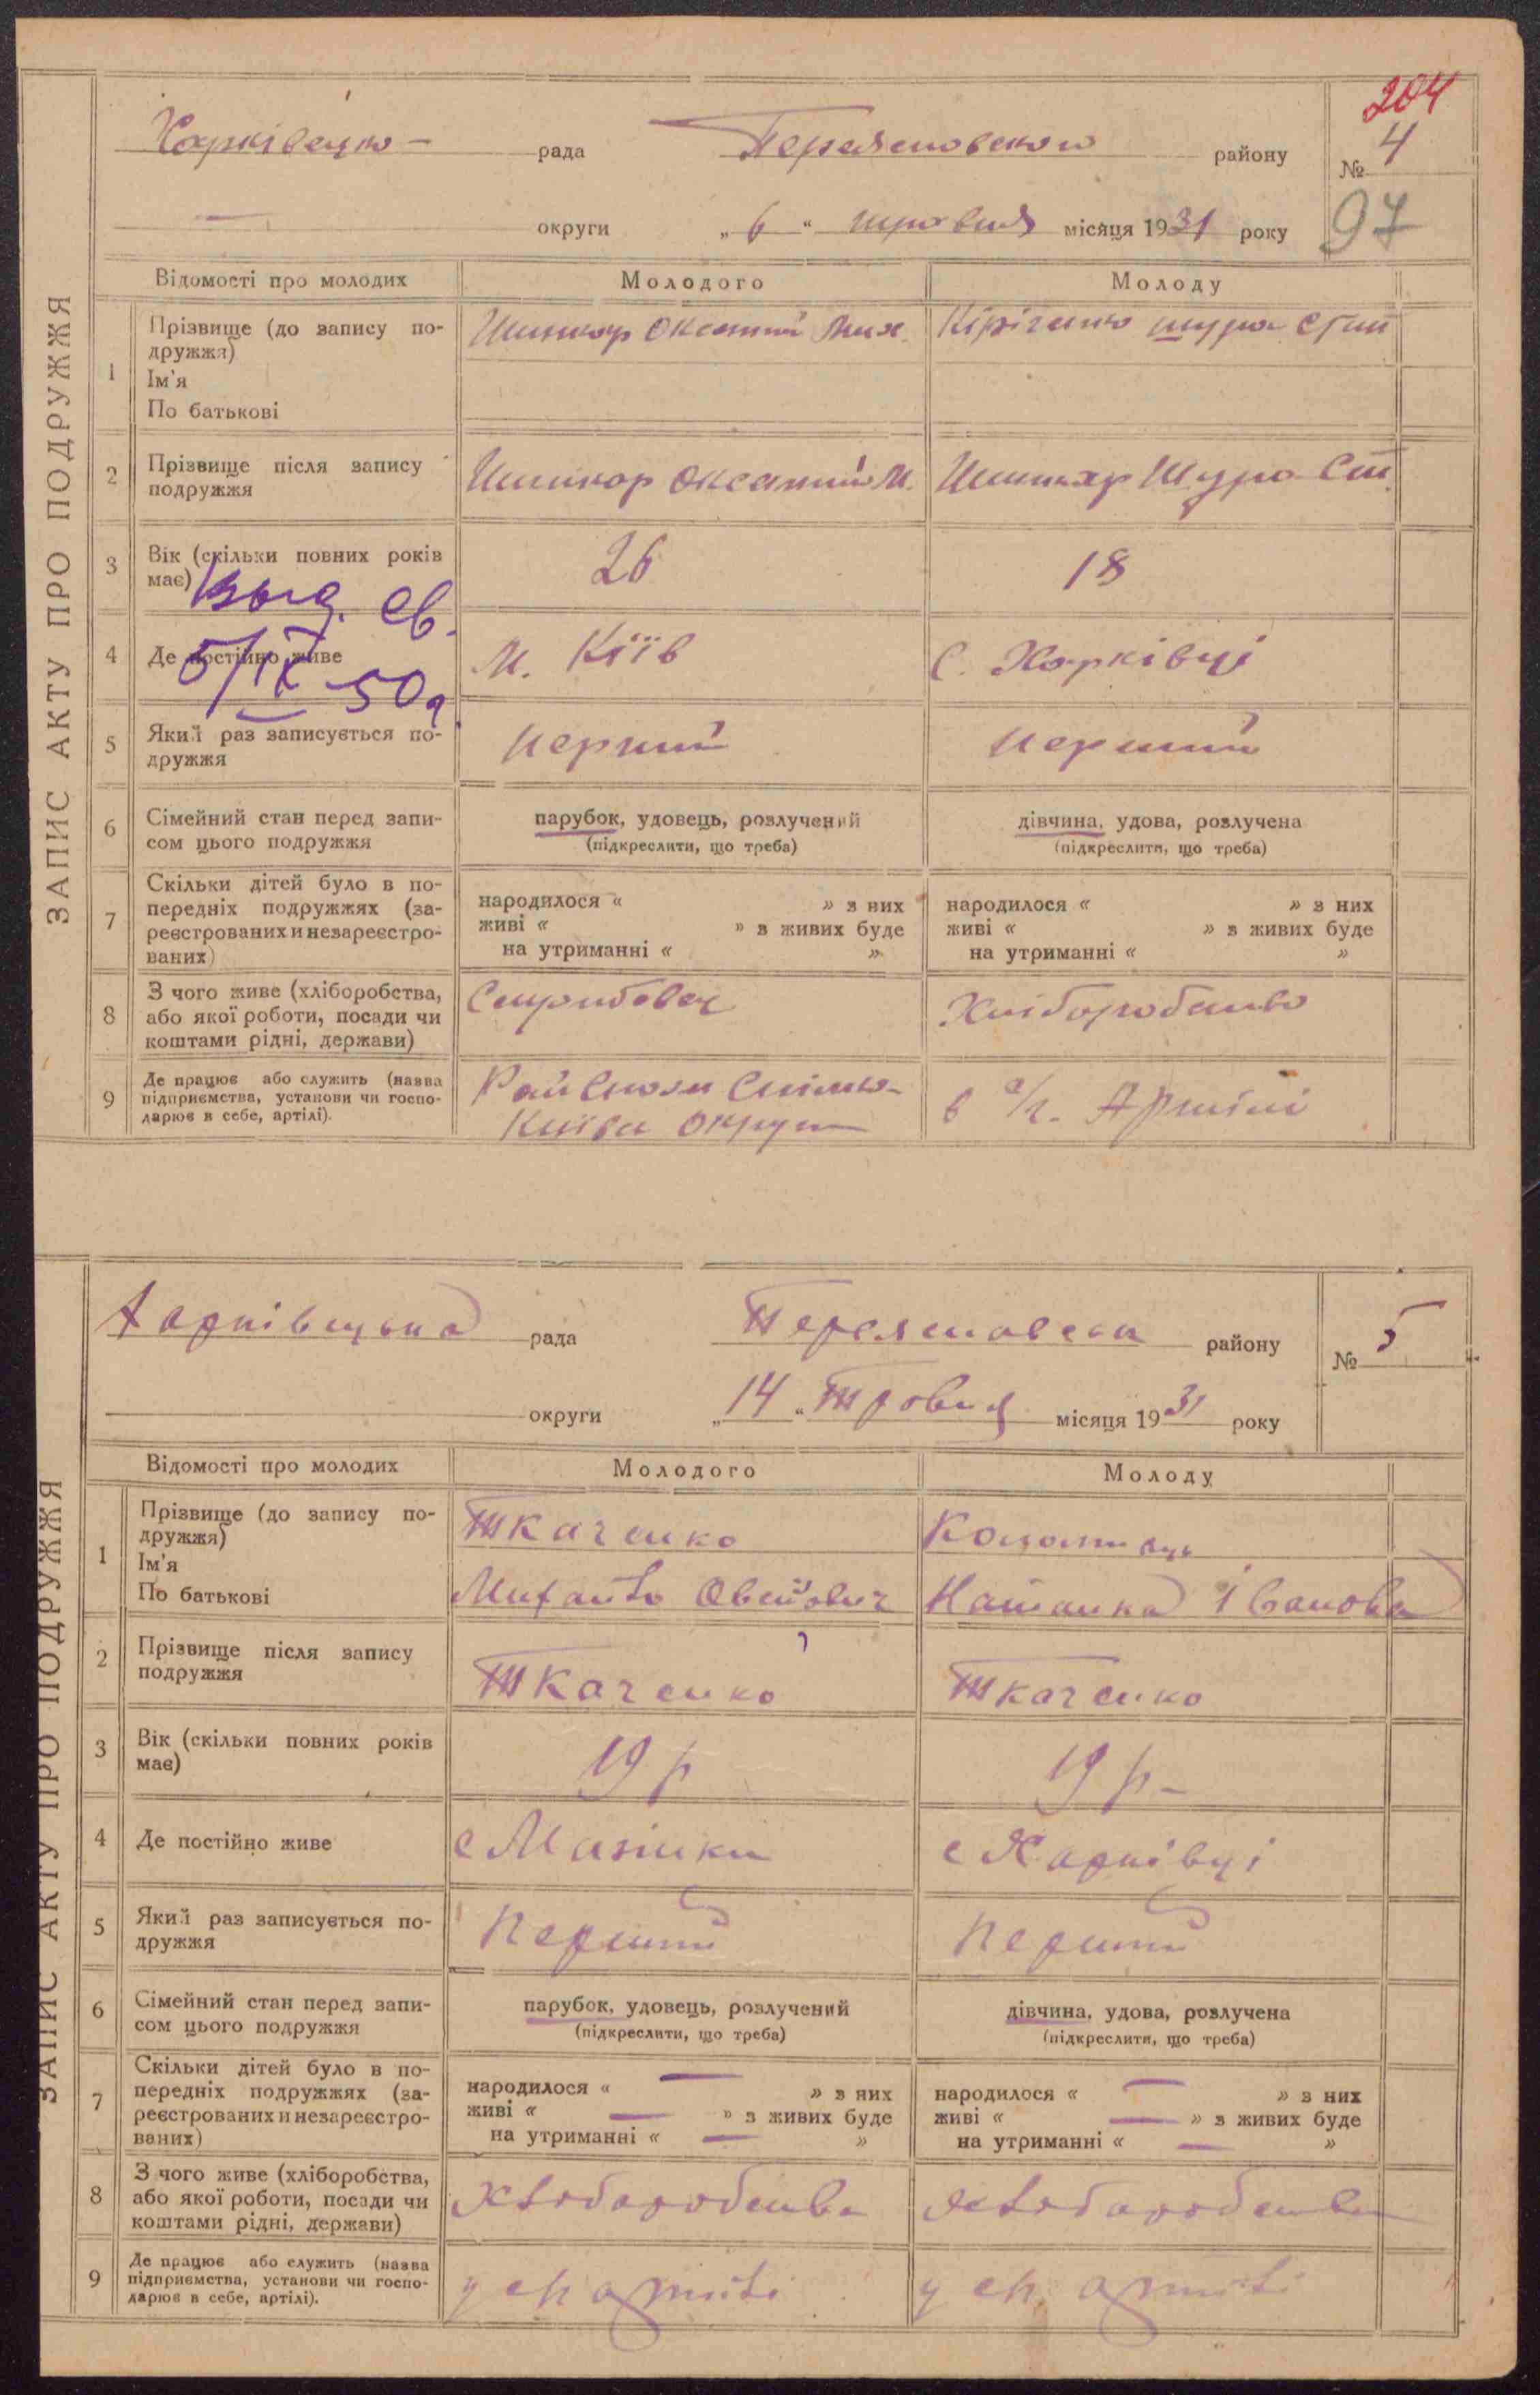 ЗАПИС АКТУ ПРО ПОДРУЖЖЯ
204
Харківецька рада Переяславського району № 4
97
округи „6“ травня місяця 1931 року
Відомості про молодих Молодого Молоду
1 Прізвище (до запису по-
дружжя)
Ім'я
По батькові
Шинкар Оксентий Мих. Кіріченко Шура Степ
2 Прізвище після запису
подружжя
Шинкар Оксентий М. Шинкар Шура Сте
3 Вік (скільки повних років
має)
26 18
Выд. св.
5/IX-50
4 Де постійно живе м. Київ С. Харківці
5 Який раз записується по-
дружжя
перший перший
6 Сімейний стан перед запи-
сом цього подружжя
парубок, удовець, розлучений
(підкреслити, що треба)
дівчина, удова, розлучена
(підкреслити, що треба)
7 Скільки дітей було в по-
передніх подружжях (за-
реєстрованих и незареєстро-
ваних)
народилося « » з них
живі « » з живих буде
на утриманні « »
народилося « » з них
живі « » з живих буде
на утриманні « »
8 З чого живе (хліборобства,
або якої роботи, посади чи
коштами рідні, держави)
Хліборобство
9 Де працює або служить (назва
підприємства, установи чи госпо-
дарює в себе, артілі).
Київа округи
в с/г. Артілі
ЗАПИС АКТУ ПРО ПОДРУЖЖЯ
Харківецька рада Переяславська району № 5
округи „14“ Травня місяця 1931 року
Відомості про молодих Молодого Молоду
1 Прізвище (до запису по-
дружжя)
Ім'я
По батькові
Ткаченко Коломиєць
Михайло Овсійович Наталка Іванова
2 Прізвище після запису
подружжя
Ткаченко Ткаченко
3 Вік (скільки повних років
має)
19 р 19 р-
4 Де постійно живе с Мазінки с Харківці
5 Який раз записується по-
дружжя
Перший Перший
6 Сімейний стан перед запи-
сом цього подружжя
парубок, удовець, розлучений
(підкреслити, що треба)
дівчина, удова, розлучена
(підкреслити, що треба)
7 Скільки дітей було в по-
передніх подружжях (за-
реєстрованих и незареєстро-
ваних)
народилося « — » з них
живі « — » з живих буде
на утриманні « — »
народилося « — » з них
живі « — » з живих буде
на утриманні « — »
8 З чого живе (хліборобства,
або якої роботи, посади чи
коштами рідні, держави)
хліборобства хліборобства
9 Де працює або служить (назва
підприємства, установи чи госпо-
дарює в себе, артілі).
у сп артілі у сп. артілі